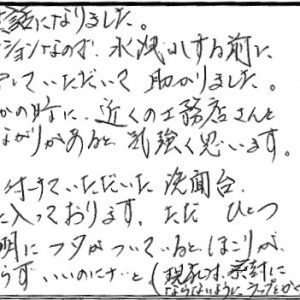 話になりました。
ションなので、水漏れする前に
していただいて助かりました。
かの時に、近くの工務店さんと
ながりがあると心強く思います。
付けていただいた洗面台、
に入っております。ただ ひとつ
明にフタがついているとほこりが
らず いいのにナと(現在は、
ならないようにラップとか